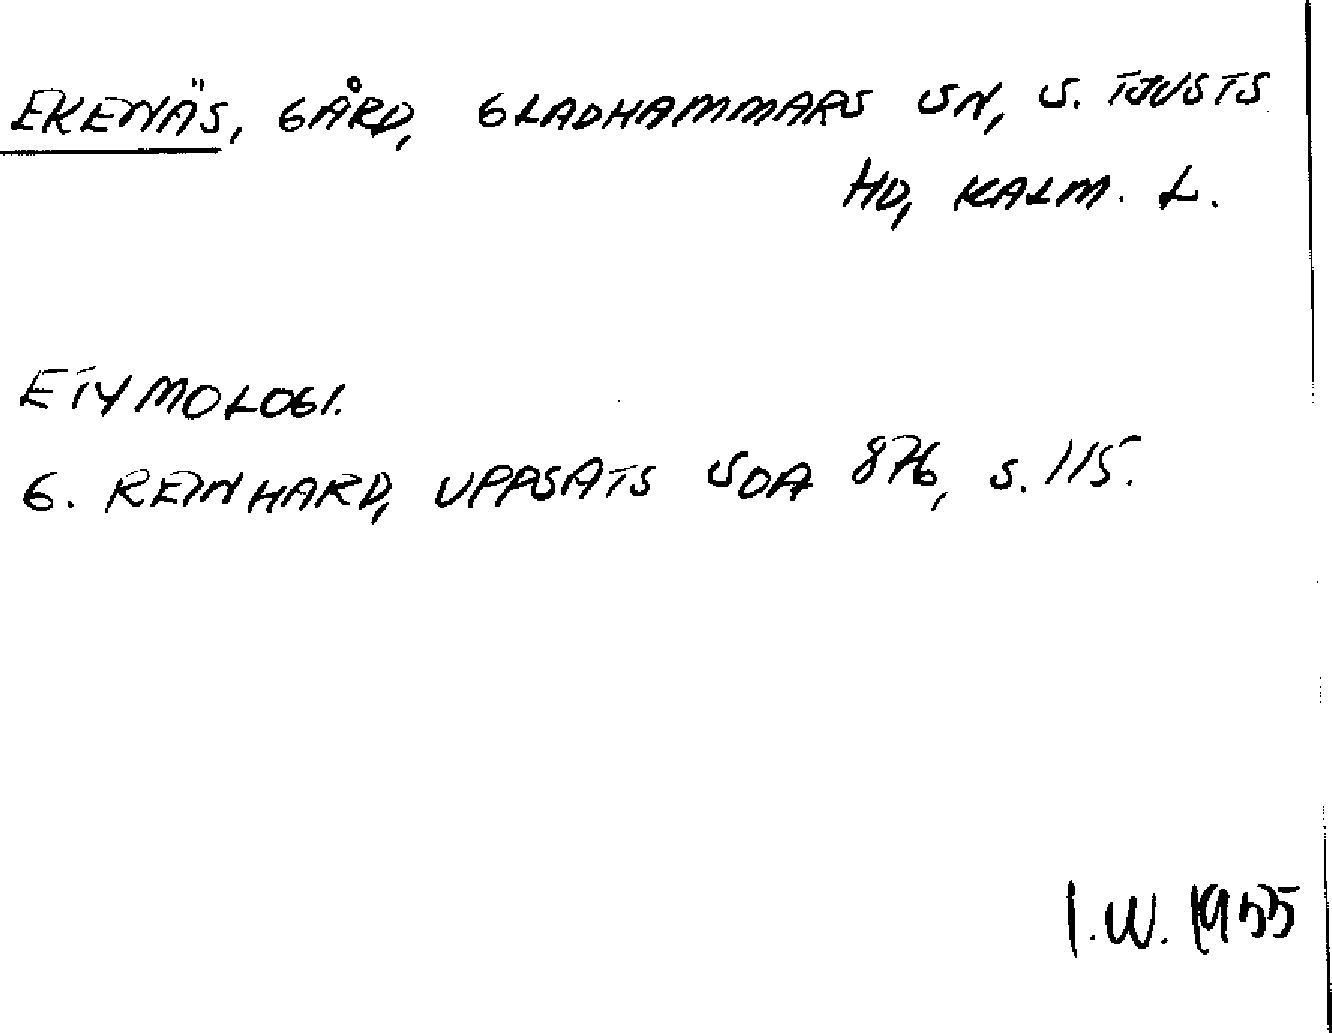 EKENÄS, GÅRD, GLADHAMMARS SN, S. TJUSTS
HD, KALM. L.
ETYMOLOGI.
G. REINHARD, UPPSATS SOA 876, S. 115.
I.W. 1955